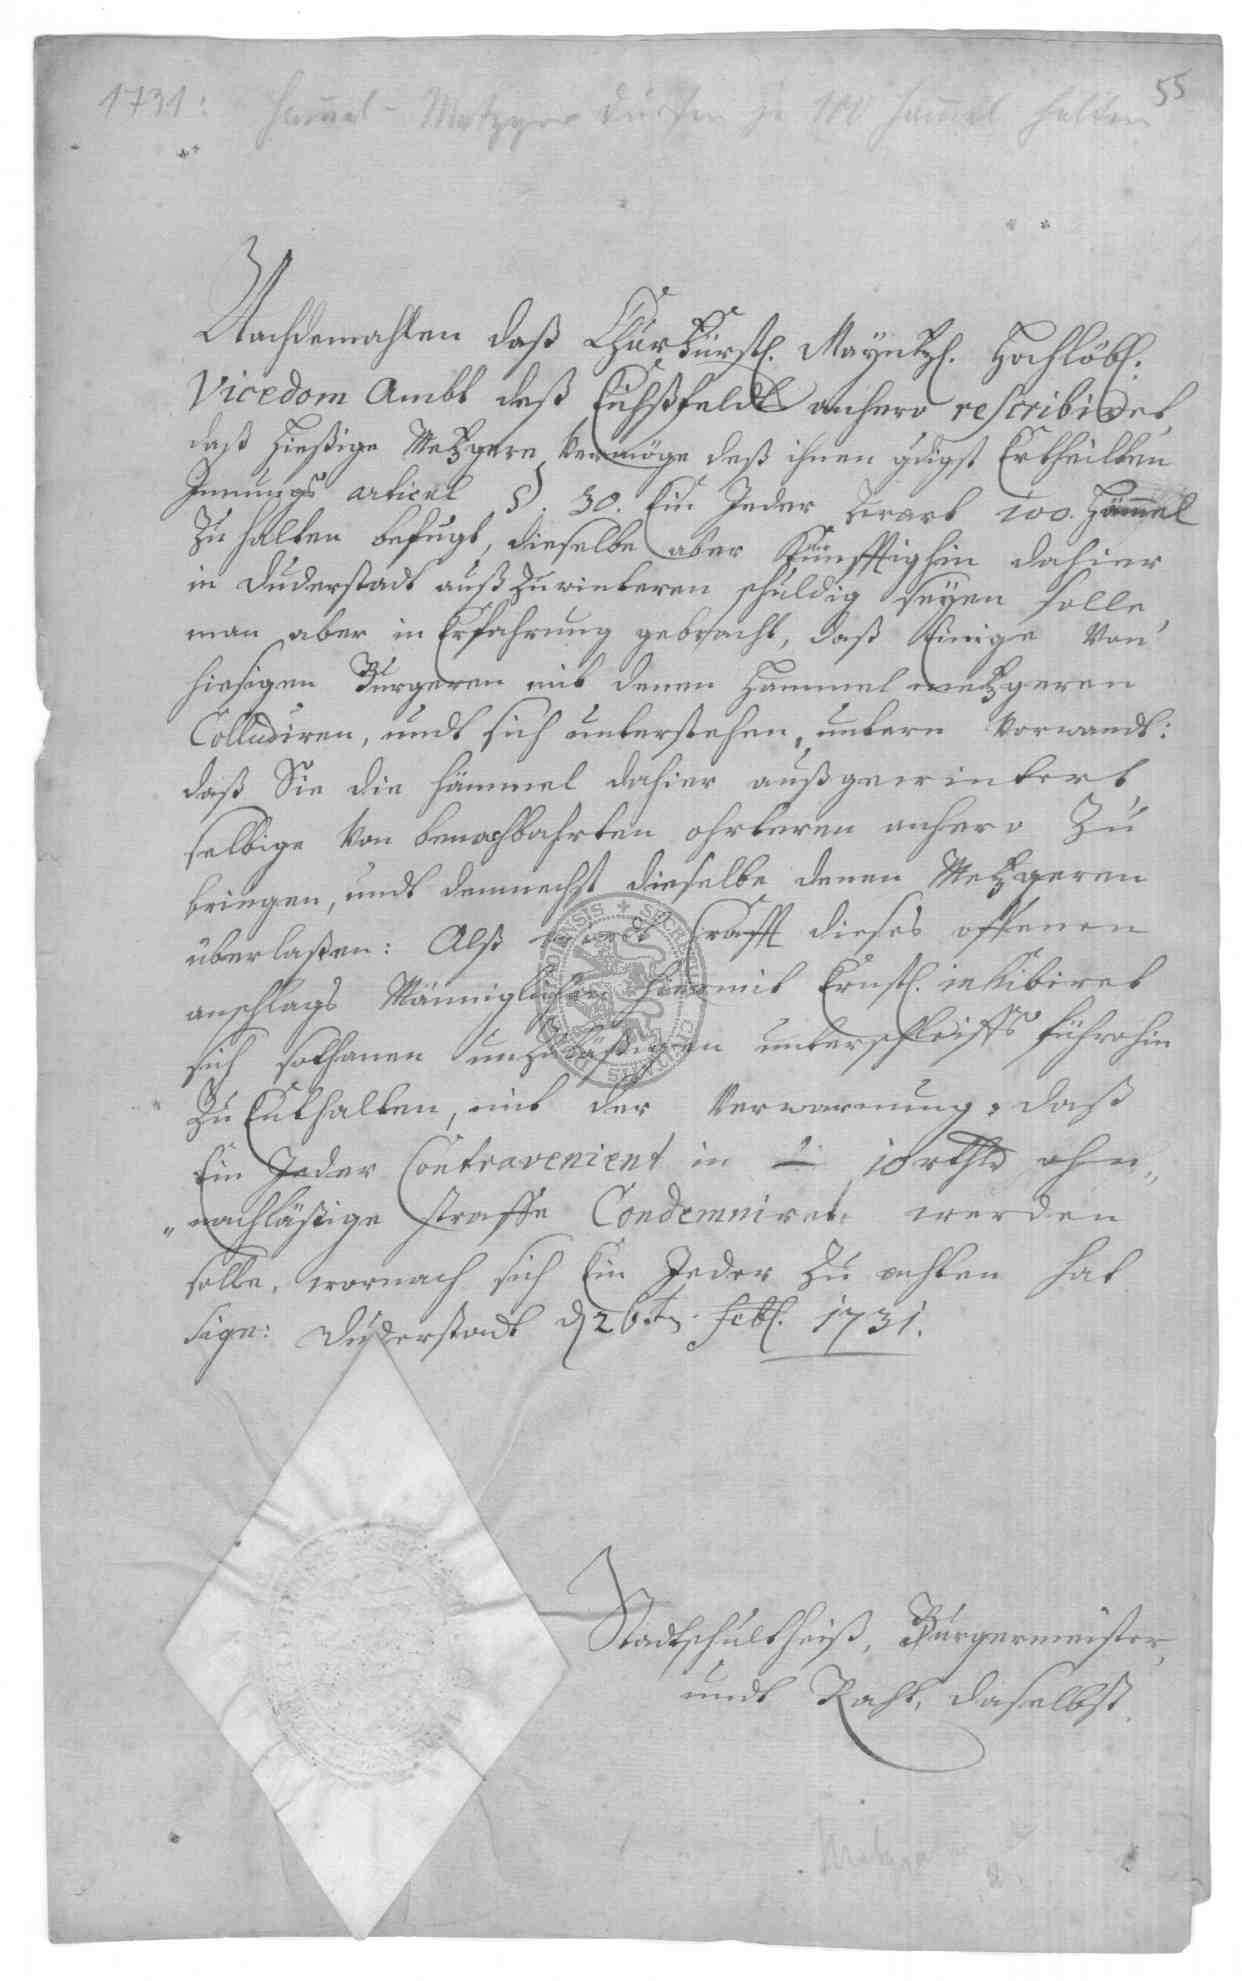 1731:
55
Hammel-Metzger dürfen je 100 Hammel halten
Nachdemahlen daß ChurFürstl. Mayntzl. Hochlöbl.
Vicedom Ambt deß Eichßfeldts anhero rescribiret,
daß hießige Metzgere, Vermöge deß ihnen gdgst Ertheilten
Innungs articul § 30. Ein Jeder Zwart 100. Hämmel
Zu halten befugt, dieselbe aber Künfftighin dahier
in Duderstadt außZuwinteren schuldig seyen solle,
man aber in Erfahrung gebracht, daß Einige Von
hiesigen Bürgeren mit denen Hammel metzgeren
Colludiren, undt sich unterstehen, untern Vorwandt:
daß Sie die hämmel dahier außgewintert
selbige Von benachbahrten ohrteren anhero Zu
bringen, undt demnechst dieselbe denen Metzgeren
überlaßen: Alß wirdt Crafft dieses offenen
anschlags Männiglichen hiermit Ernstl. inhibiret
sich sothanen unzuläßigen unterschleiffs führohin
Zu Enthalten, mit der Verwarnung, daß
Ein Jeder Contravenient in 10 rthlr ohn„
„nachläßige straffe Condemniret werden
solle, wornach sich Ein Jeder Zu achten hat
Sign: Duderstadt d 26ten Febl. 1731.
Stadtschultheiß, Bürgermeister,
undt Raht, daselbst.
Metzger